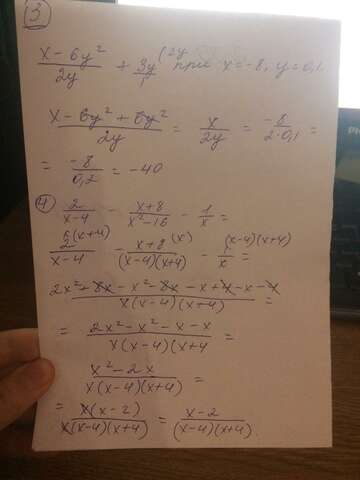 ③
(x - 6y²)/2y + 3y/1 (2y при x = -8, y = 0,1
(x - 6y² + 6y²)/2y = x/2y = -8/(2·0,1) =
= -8/0,2 = -40
④ 2/(x-4) - (x+8)/(x²-16) - 1/x =
2/(x-4) (x+4) - (x+8)/((x-4)(x+4)) (x) - 1/x (x-4)(x+4) =
(2x² + 8x - x² - 8x - x + 4 - x - 4)/(x(x-4)(x+4)) =
= (2x² - x² - x - x)/(x(x-4)(x+4) =
(x² - 2x)/(x(x-4)(x+4)) =
= (x(x-2))/(x(x-4)(x+4)) = (x-2)/((x-4)(x+4))